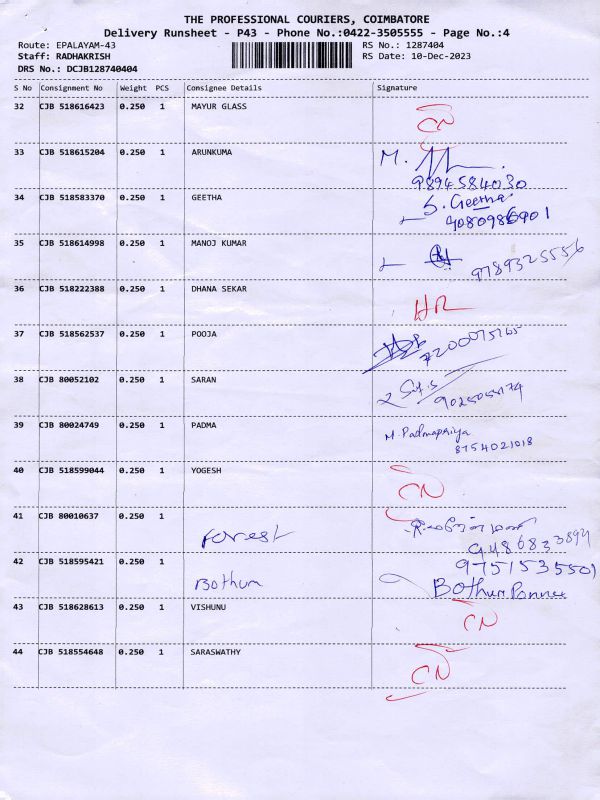 THE PROFESSIONAL COURIERS, COIMBATORE
Delivery Runsheet - P43 - Phone No.:0422-3505555 - Page No.:4
Route: EPALAYAM-43 RS No.: 1287404
Staff: RADHAKRISH RS Date: 10-Dec-2023
DRS No.: DCJB128740404
S No Consignment No Weight PCS Consignee Details Signature
32 CJB 518616423 0.250 1 MAYUR GLASS CN
33 CJB 518615204 0.250 1 ARUNKUMA M.
9894584030
34 CJB 518583370 0.250 1 GEETHA S. Geetha
35 CJB 518614998 0.250 1 MANOJ KUMAR
9789325556
36 CJB 518222388 0.250 1 DHANA SEKAR HR
37 CJB 518562537 0.250 1 POOJA
38 CJB 80052102 0.250 1 SARAN
39 CJB 80024749 0.250 1 PADMA M. Padmapriya
8754021018
40 CJB 518599044 0.250 1 YOGESH CN
41 CJB 80010637 0.250 1 Forest
9486833894
42 CJB 518595421 0.250 1 Bothum 9751535501
Bothum Ponnu
43 CJB 518628613 0.250 1 VISHUNU CN
44 CJB 518554648 0.250 1 SARASWATHY CN